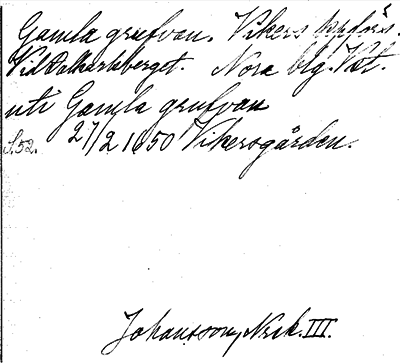 Gamla grufvan. Vikers kpdörs.
Vid Dalkarlsberget. Nora blg. Vst.
uti Gamla grufvan
S. 52. 27/2 1650 Vikersgården.
Johansson, Nrik. III.